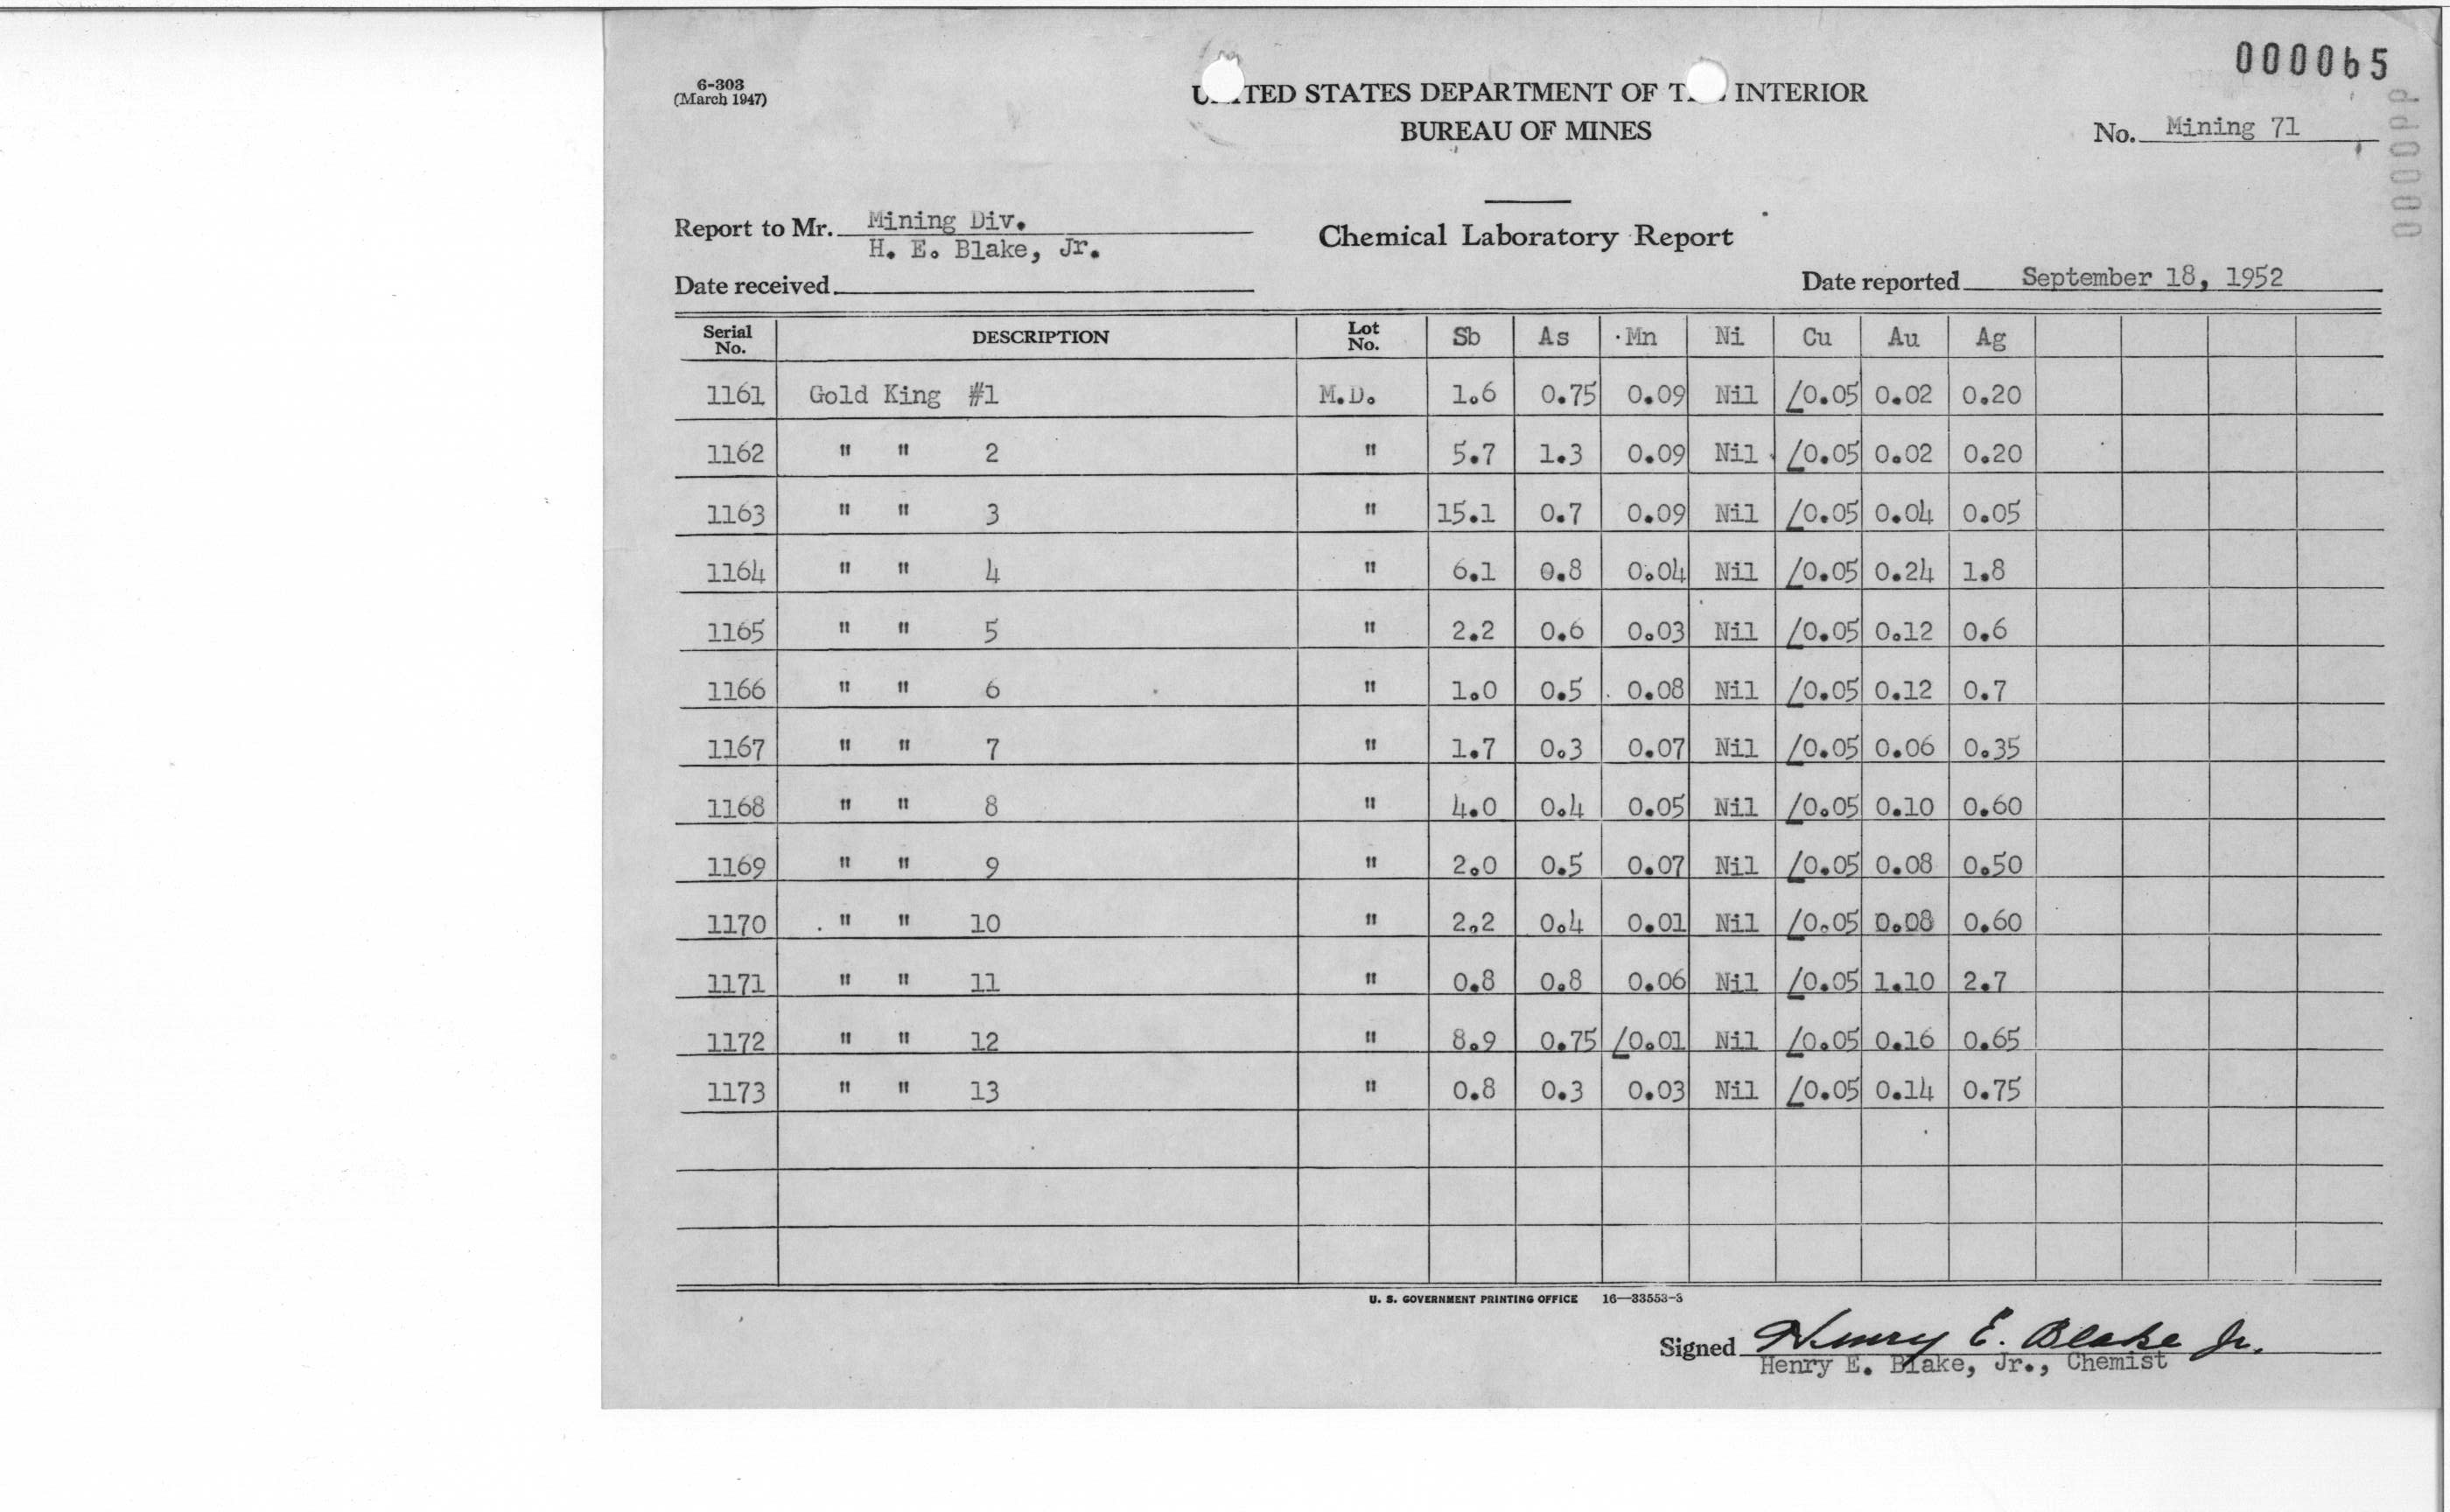 000065
6-303
(March 1947)
UNITED STATES DEPARTMENT OF THE INTERIOR
BUREAU OF MINES
No. Mining 71
Report to Mr. Mining Div.
H. E. Blake, Jr.
Chemical Laboratory Report
Date received
Date reported September 18, 1952
Serial No. DESCRIPTION Lot No. Sb As Mn Ni Cu Au Ag
1161 Gold King #1 M.D. 1.6 0.75 0.09 Nil /0.05 0.02 0.20
1162 " " 2 " 5.7 1.3 0.09 Nil /0.05 0.02 0.20
1163 " " 3 " 15.1 0.7 0.09 Nil /0.05 0.04 0.05
1164 " " 4 " 6.1 0.8 0.04 Nil /0.05 0.24 1.8
1165 " " 5 " 2.2 0.6 0.03 Nil /0.05 0.12 0.6
1166 " " 6 " 1.0 0.5 0.08 Nil /0.05 0.12 0.7
1167 " " 7 " 1.7 0.3 0.07 Nil /0.05 0.06 0.35
1168 " " 8 " 4.0 0.4 0.05 Nil /0.05 0.10 0.60
1169 " " 9 " 2.0 0.5 0.07 Nil /0.05 0.08 0.50
1170 " " 10 " 2.2 0.4 0.01 Nil /0.05 0.08 0.60
1171 " " 11 " 0.8 0.8 0.06 Nil /0.05 1.10 2.7
1172 " " 12 " 8.9 0.75 /0.01 Nil /0.05 0.16 0.65
1173 " " 13 " 0.8 0.3 0.03 Nil /0.05 0.14 0.75
U. S. GOVERNMENT PRINTING OFFICE 16—33553-3
Signed Henry E. Blake Jr.
Henry E. Blake, Jr., Chemist